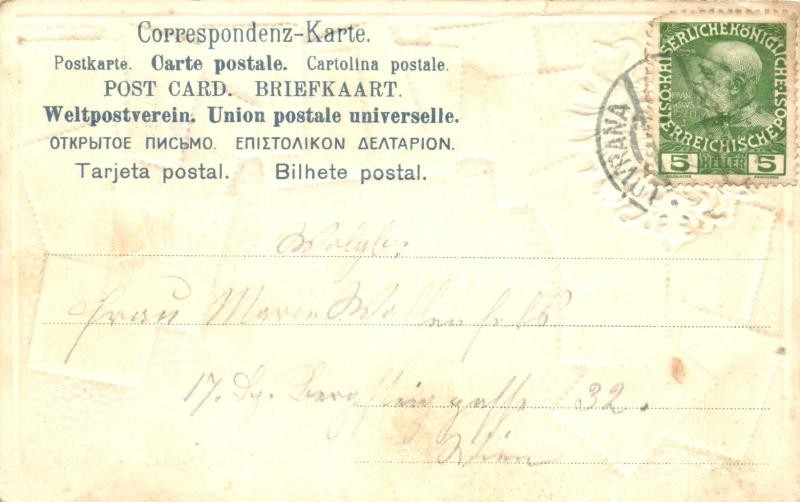 Correspondenz-Karte.
Postkarte. Carte postale. Cartolina postale.
POST CARD. BRIEFKAART.
Weltpostverein. Union postale universelle.
ОТКРЫТОЕ ПИСЬМО. ΕΠΙΣΤΟΛΙΚΟΝ ΔΕΛΤΑΡΙΟΝ.
Tarjeta postal. Bilhete postal.
KAISERLICHE KÖNIGLICHE ÖSTERREICHISCHE POST
5 HELLER 5
LOVRANA
Frau Marie Wallenfels
17. 32.
Wien